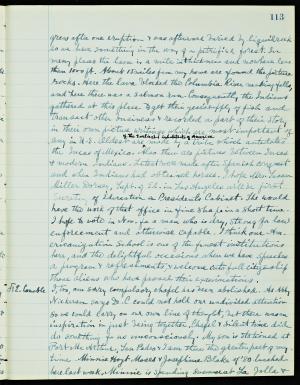 113
gress after one eruption & was afterward buried by liquid rock
so we have something in the way of a petrified forest. In
many places the lava is a mile in thickness and nowhere less
than 500 ft. About 18 miles from my home are found the picture
rocks. Here the lava blocked the Columbia River, making falls,
and here there was a salmon run. Consequently, the Indians
gathered at this place to get their years supply of fish and
transact other business & recorded a part of their story
in their own picture writing which are most important of
any in U.S. All are made by a race which antedates
the races of Mexico. Also there are pictures between Incas
& modern Indians. Latest were made after Spanish conquest
and when Indians had obtained horses. I hope Mrs. Susan
Miller Dorsey, Supt. of Ed. in Los Angeles will be first
Secretary of Education in President's Cabinet. She would
have the work of that office in fine shape in a short time.
I hope to vote in Nov. for a man who is dry, strong for law
enforcement and otherwise capable. I think our Am-
ericanization School is one of the finest institutions here,
and the delightful occasions when we have speeches
a program & refreshments & welcome into full citizenship
those aliens who have proved their
I, too, am sorry compulsory chapel has been abolished. As Abby
Nickerson says D. C. could not hold our undivided attention
so we could carry on our own line of thought, but there was an
inspiration in just being together. Chapel & Silent time did
do something to us unconsciously. My son is stationed at
Fort MacArthur, San Pedro. I am there the greater part of my
time. Minnie Hoyt Moses & Josephine Blake of '80 lunched
here last week. Minnie is spending summer at La Jolla &